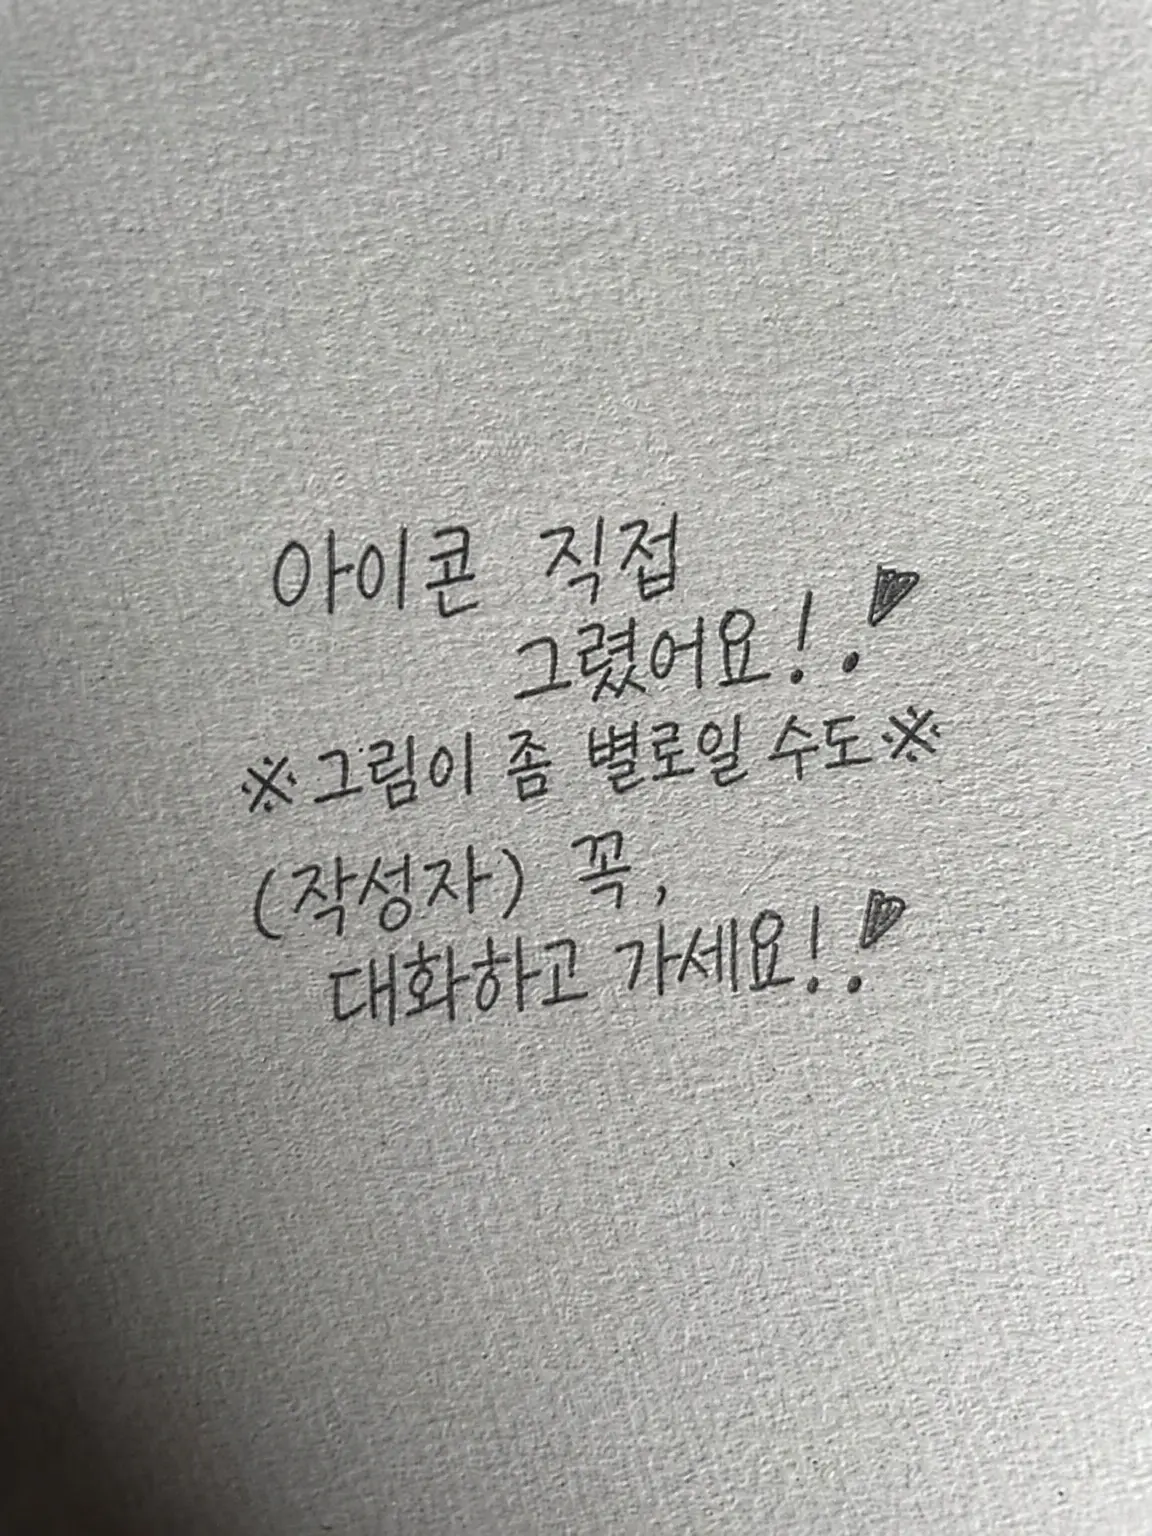 아이콘 직접
그렸어요!.♥
※그림이 좀 별로일 수도※
(작성자) 꼭,
대화하고 가세요!.♥